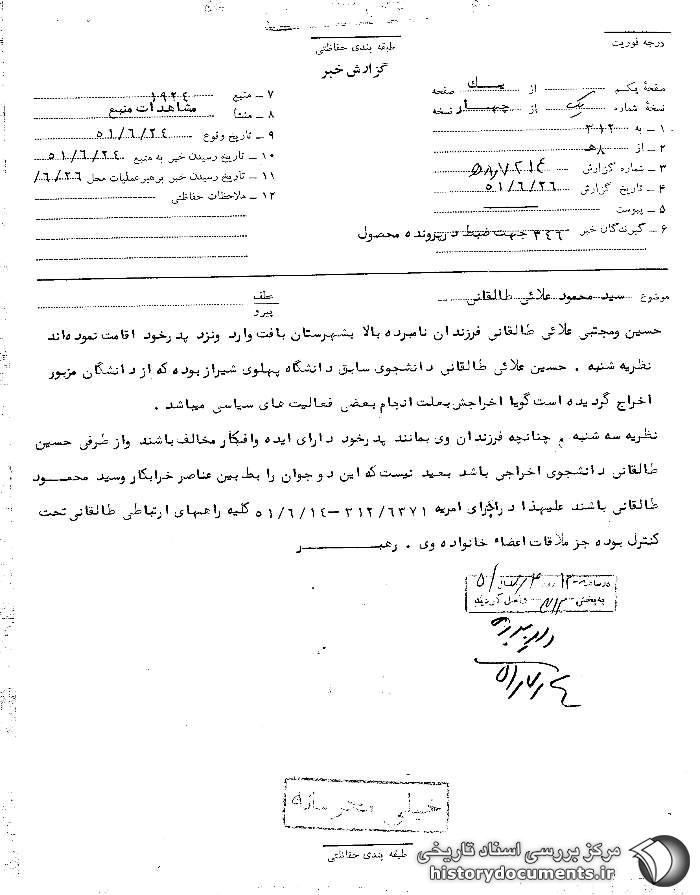 درجه فوریت
طبقه بندی حفاظتی
گزارش خبر
صفحهٔ یکم از یک صفحه
نسخهٔ شماره یک از چهار نسخه
۱ ـ به ۳۱۲
۲ ـ از ۸هـ
۳ ـ شماره گزارش
۴ ـ تاریخ گزارش ۵۱/۶/۲۶
۵ ـ پیوست
۶ ـ گیرندگان خبر ۳۴۶ جهت ضبط در پرونده محصول
۷ ـ منبع ۱۹۲۴
۸ ـ منشأ مشاهدات منبع
۹ ـ تاریخ وقوع ۵۱/۶/۲۴
۱۰ ـ تاریخ رسیدن خبر به منبع ۵۱/۶/۲۴
۱۱ ـ تاریخ رسیدن خبر برهبر عملیات محل ۶/۲۶/
۱۲ ـ ملاحظات حفاظتی
موضوع سید محمود علائی طالقانی
عطف
پیرو
حسین ومجتبی علائی طالقانی فرزندان نامبرده بالا بشهرستان بافت وارد ونزد پدرخود اقامت نموده‌اند
نظریه شنبه . حسین علائی طالقانی دانشجوی سابق دانشگاه پهلوی شیراز بوده که از دانشگان مزبور
اخراج گردیده است گویا اخراجش بعلت انجام بعضی فعالیت های سیاسی میباشد .
نظریه سه شنبه . چنانچه فرزندان وی بمانند پدرخود دارای ایده وافکار مخالف باشند واز طرفی حسین
طالقانی دانشجوی اخراجی باشد بعید نیست که این دو جوان رابط بین عناصر خرابکار وسید محمود
طالقانی باشند علیهذا در اجرای امریه ۳۱۲/۶۳۷۱ – ۵۱/۶/۱۴ کلیه راههای ارتباطی طالقانی تحت
کنترل بوده جز ملاقات اعضاء خانواده وی . رهبر
به بخش ۳۱۲ واصل گردید
۵۱/۷/۴
خیلی محرمانه
طبقه بندی حفاظتی
مرکز بررسی اسناد تاریخی
historydocuments.ir